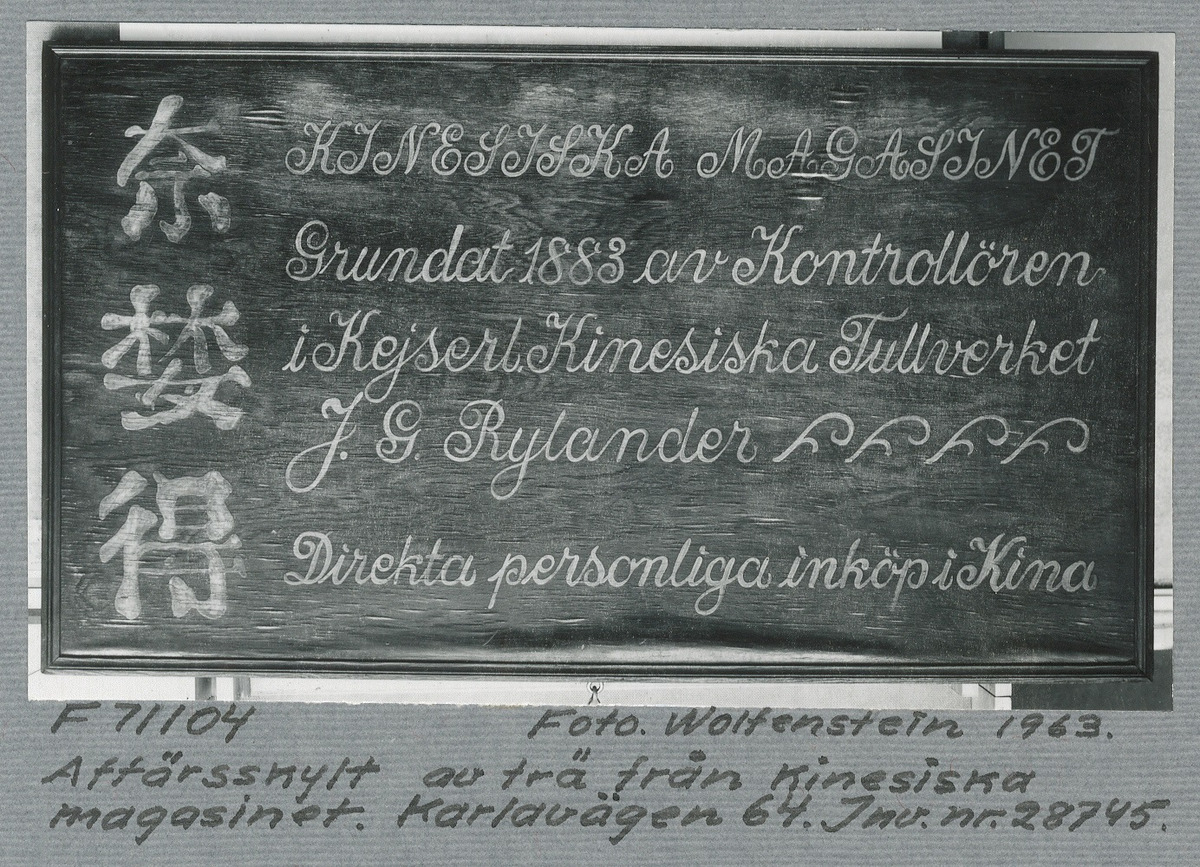 奈婪得
KINESISKA MAGASINET
Grundat 1883 av Kontrollören
i Kejserl. Kinesiska Tullverket
J. G. Rylander
Direkta personliga inköp i Kina
F 71104 Foto. Wolfenstein 1963.
Affärsskylt av trä från Kinesiska
magasinet. Karlavägen 64. Inv. nr. 28745.